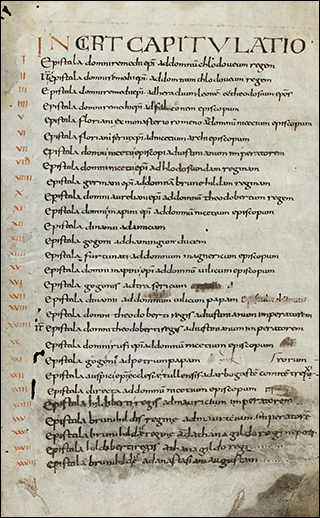 INCPT CAPITULATIO
I Epistola domni remedii epi ad domnu chlodoueum regem
II Epistola domni remedii epi ad domnum chlodoueum regem
III Epistola domni remedii epi ad heraclium leone et theodosium epos
IIII Epistola domni remedii epi ad falconem episcopum
V Epistola floriani ex monasterio romeno ad domnu nicetium episcopum
VI Epistola floriani ad nicetium episcopum
VII Epistola domni nicetii episcopi ad iustinianum imperatorem
VIII Epistola domni nicetii epi ad hlodosuindam reginam
Epistola germani epi ad domna brunehildam reginam
X Epistola domni aureliani epi ad domnu theodobertum regem
XI Epistola domni mapini epi ad domnu nicetium episcopum
XII Epistola dinamii ad amicum
XIII Epistola gogoni ad chamingum ducem
Epistola furtunati ad domnum magnericum episcopum
XV Epistola domni mapini epi ad domnu uilicum episcopum
XVI Epistola gogonis ad trasericum
XVII Epistola dinamii ad domnum uilicum papam
XVIII Epistola domni theodoberti regis ad iustinianum imperatorem
Epistola domni theodoberti regis ad iustinianum imperatorem
Epistola domni rufi epi ad domnu nicetium episcopum
Epistola gogoni ad petrum papam
Epistola auspicii epi ecclesie tullensis ad arbogaste comite
Epistola ad domnu nicetium episcopum
Epistola hildeberti regis ad mauricium imperatorem
Epistola brunihildis regine ad mauricium imperatore
Epistola brunihilde regine ad athanagildo rege
Epistola hildeberti regis athanagildo regi
Epistola brunihilde ad anastasiam augustam